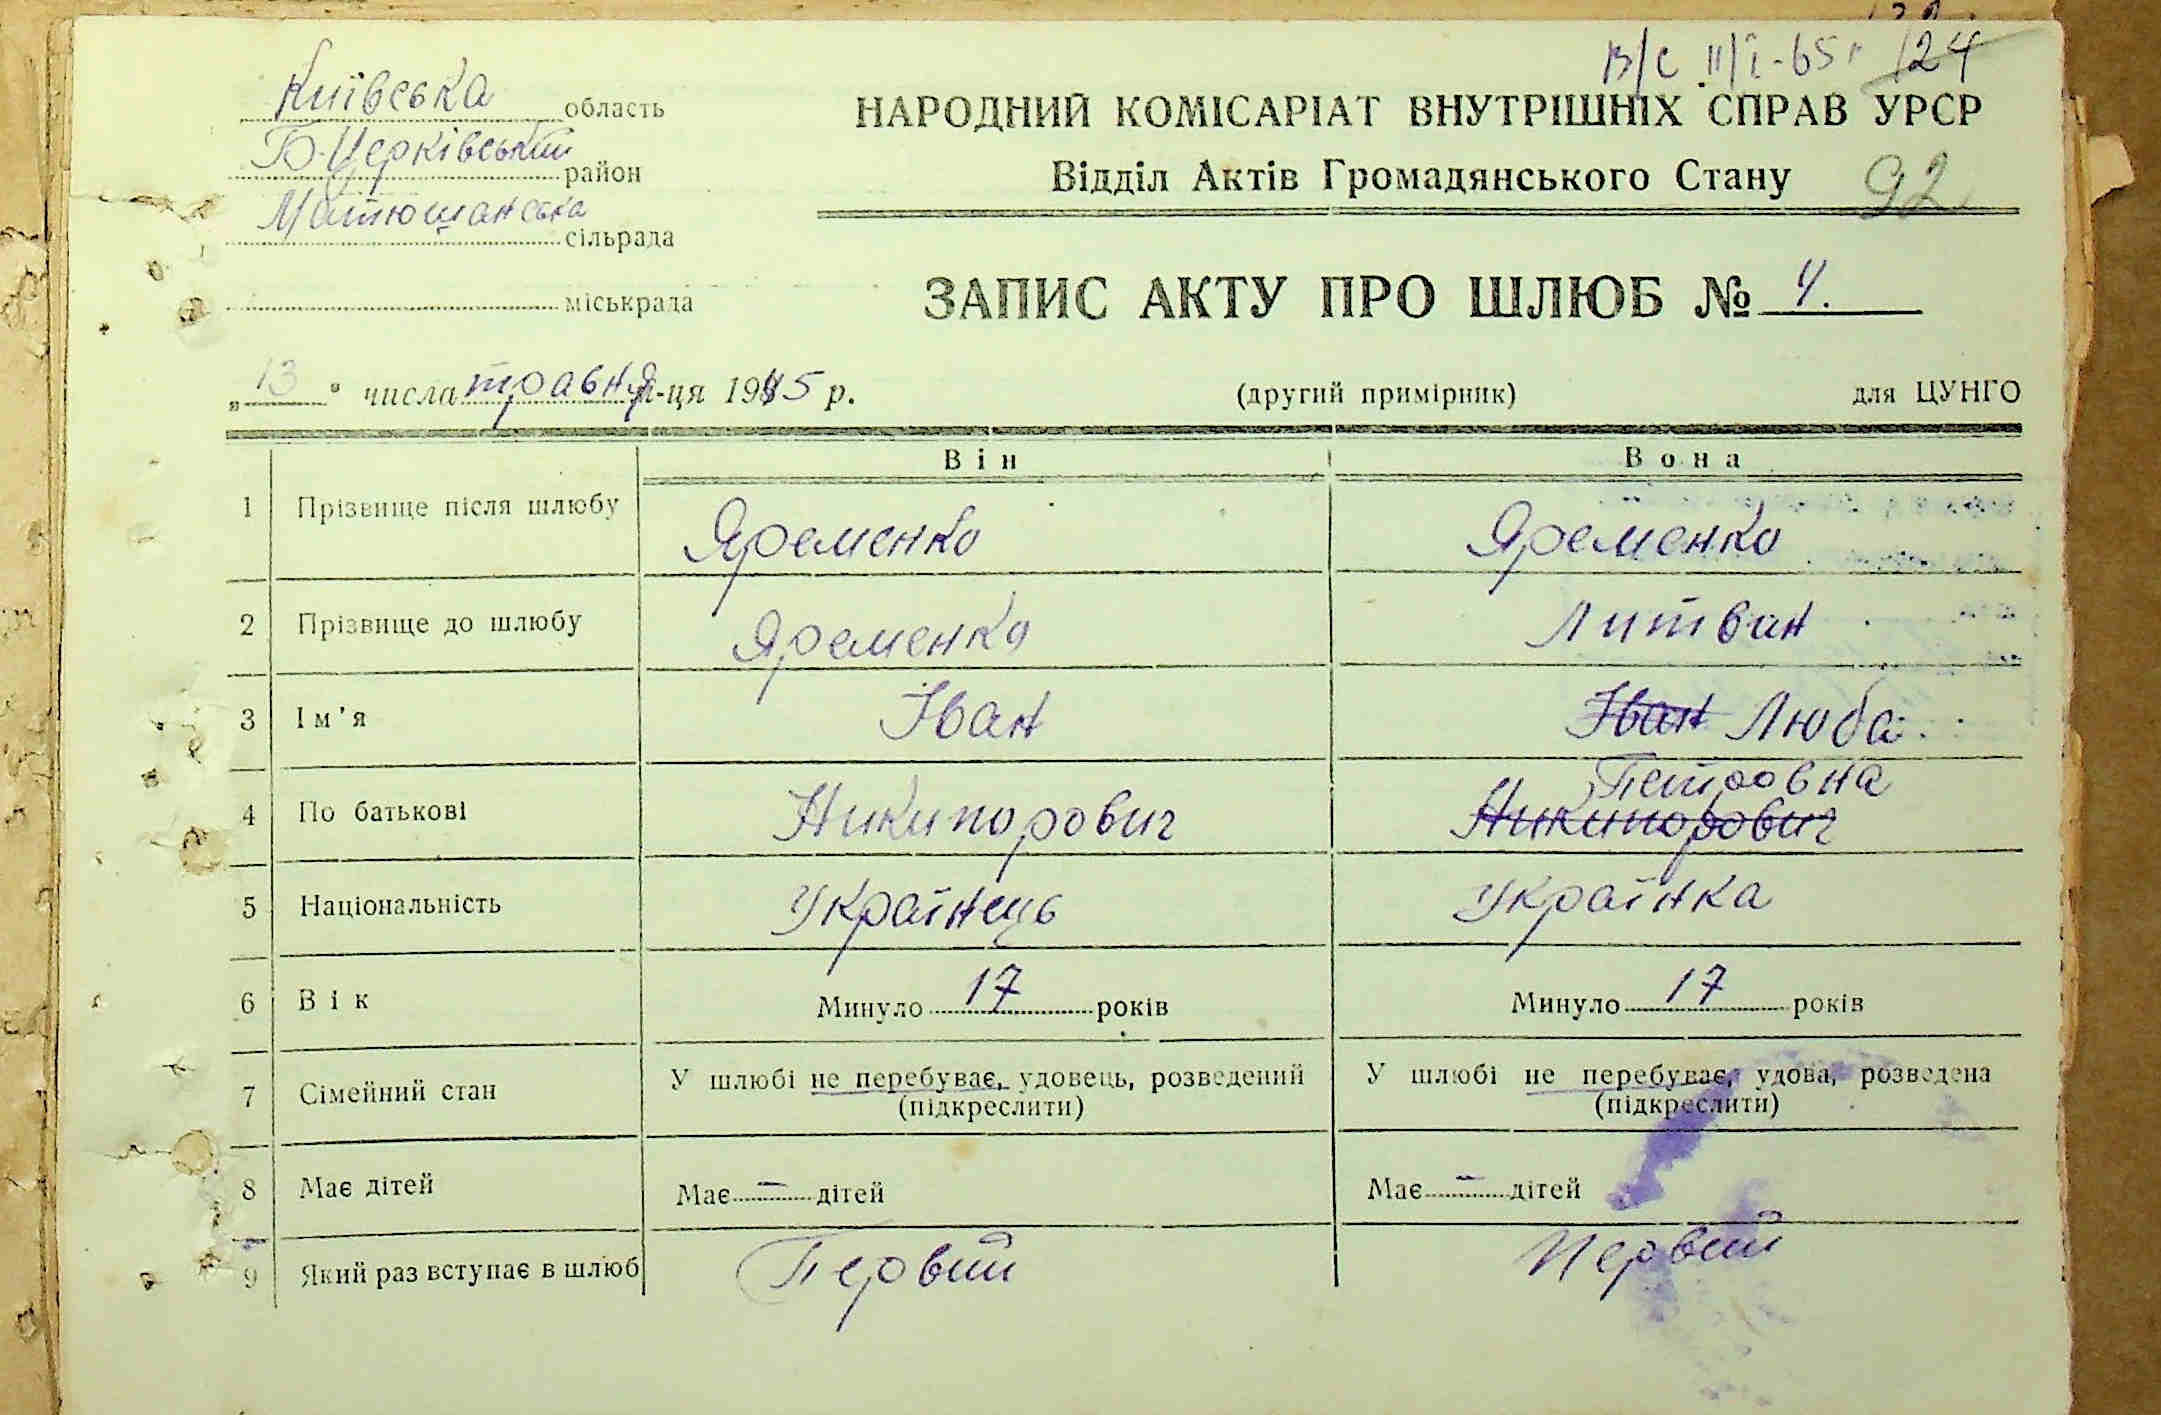 В/С II/I-65 г 124
Київська область
Б-Церківський район
Матюшанська сільрада
міськрада
НАРОДНИЙ КОМІСАРІАТ ВНУТРІШНІХ СПРАВ УРСР
Відділ Актів Громадянського Стану 92
ЗАПИС АКТУ ПРО ШЛЮБ № 4.
„13" числа травня м-ця 1945 р. (другий примірник) для ЦУНГО
Він Вона
1 Прізвище після шлюбу Яременко Яременко
2 Прізвище до шлюбу Яременко Литвин
3 Ім'я Іван Іван Люба
4 По батькові Никипорович Петровна Никипорович
5 Національність Українець Українка
6 Вік Минуло 17 років Минуло 17 років
7 Сімейний стан У шлюбі не перебуває, удовець, розведений У шлюбі не перебуває, удова, розведена
(підкреслити) (підкреслити)
8 Має дітей Має – дітей Має – дітей
9 Який раз вступає в шлюб Первий Первий